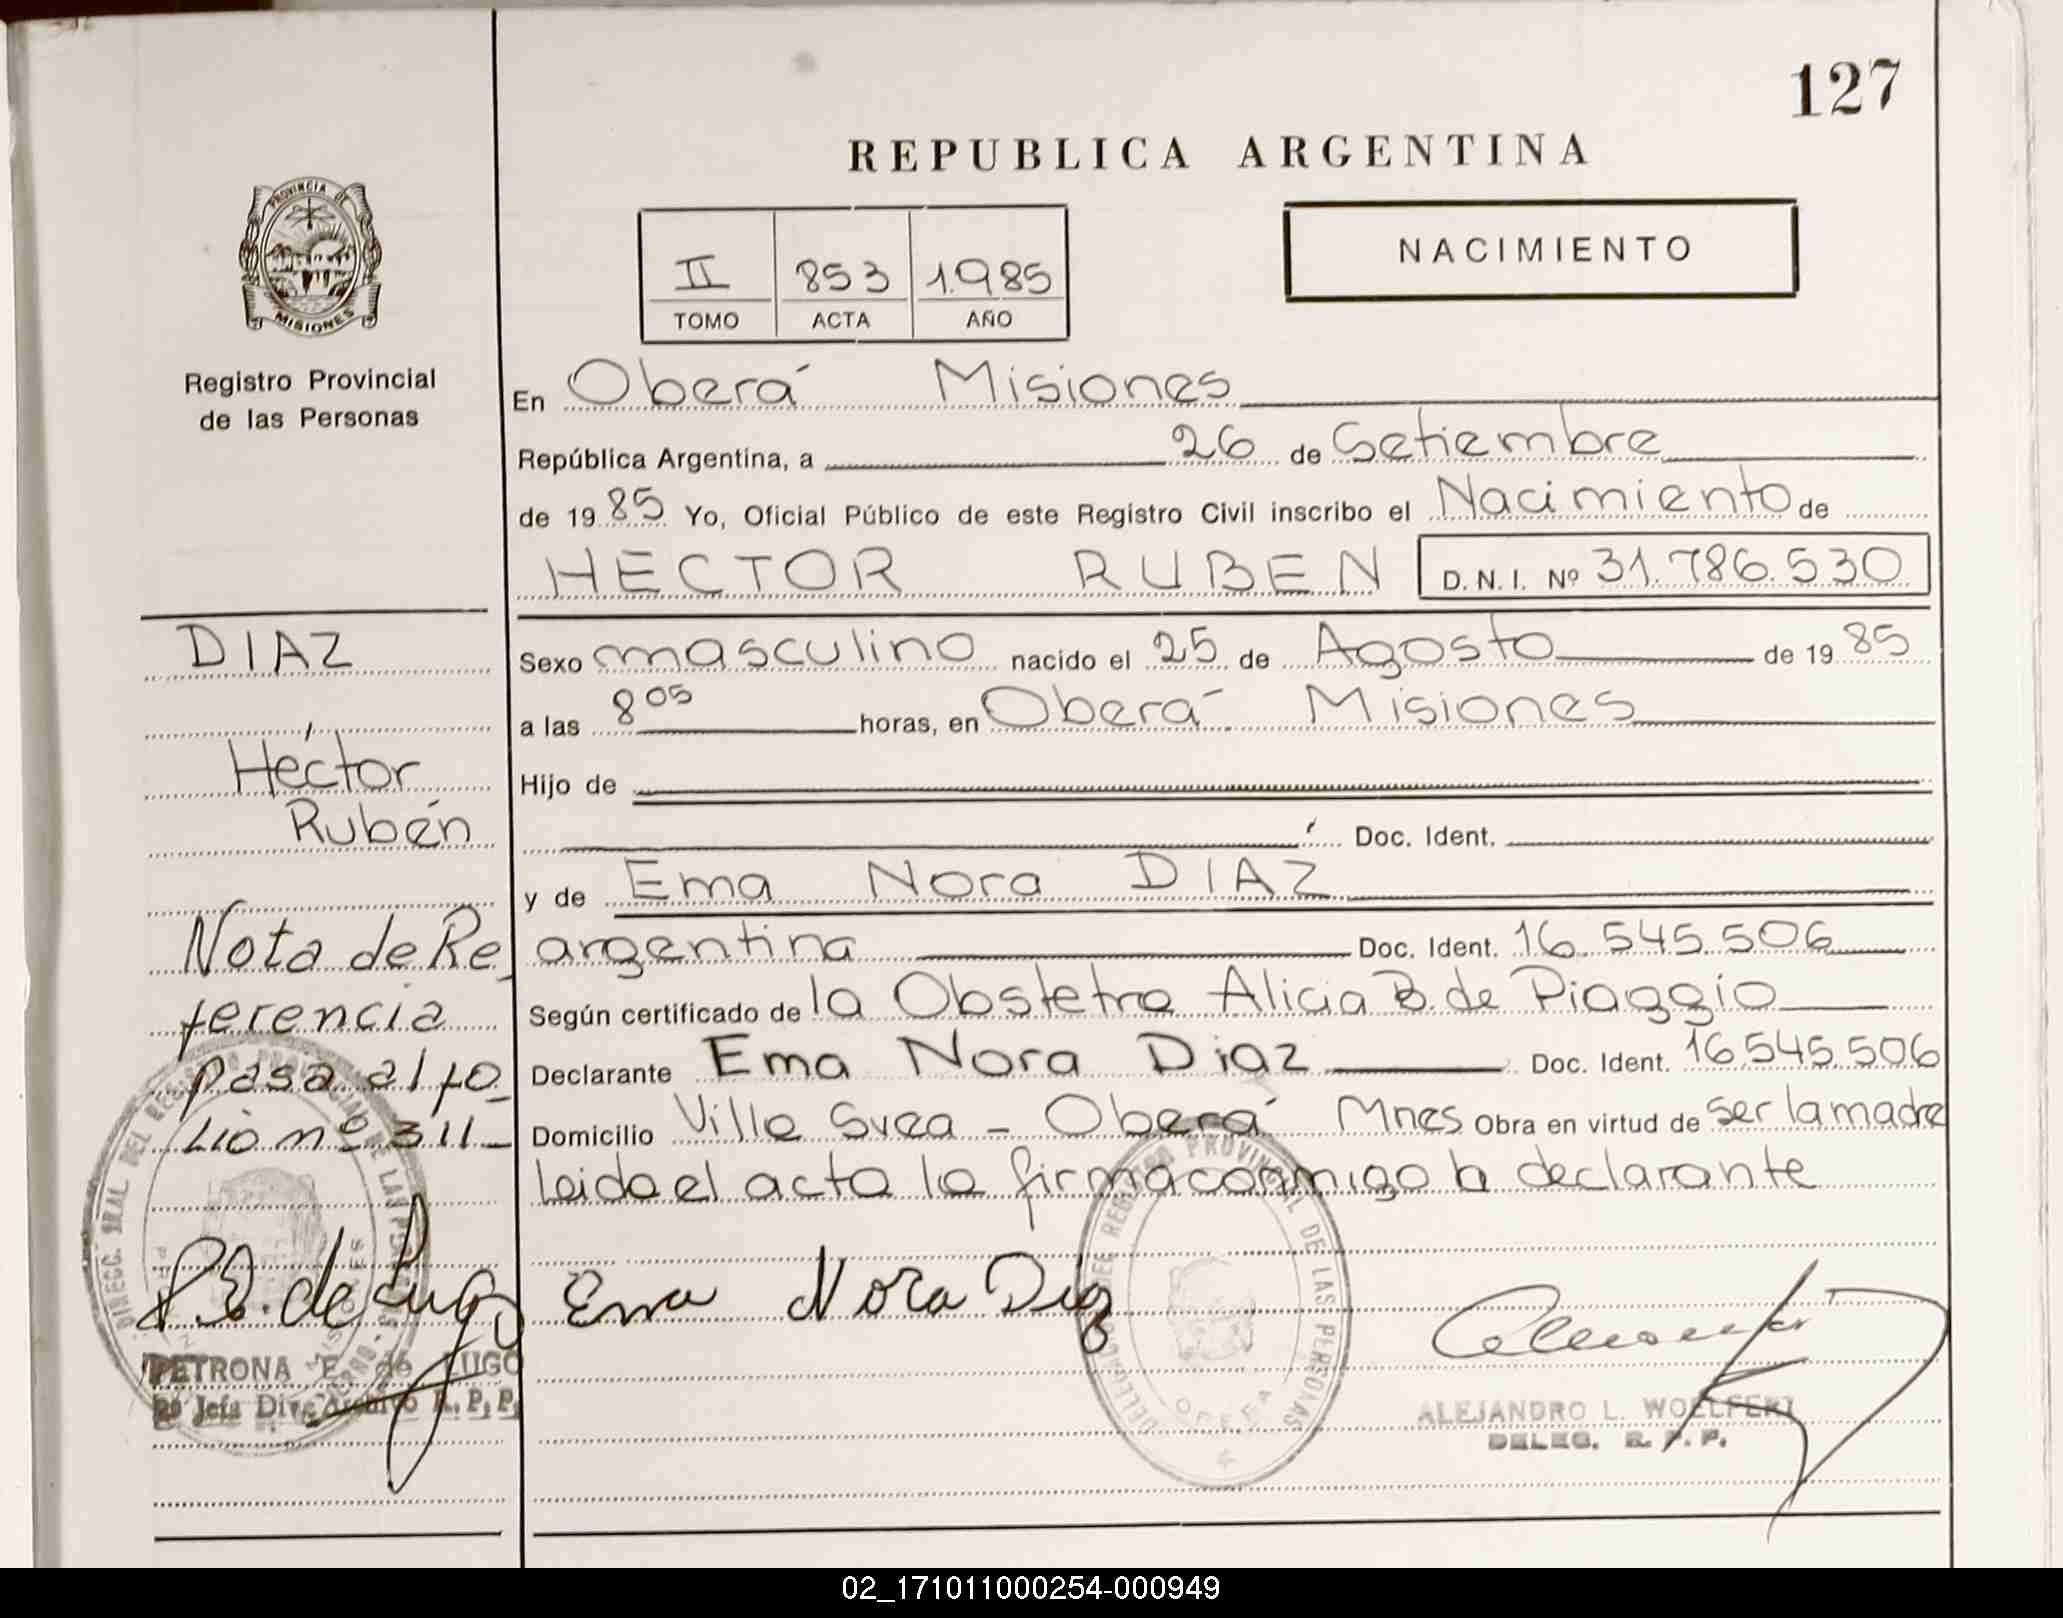 127
REPUBLICA ARGENTINA
PROVINCIA DE
MISIONES
Registro Provincial
de las Personas
II 853 1.985
TOMO ACTA AÑO
NACIMIENTO
En Oberá Misiones
República Argentina, a 26 de Setiembre
de 19 85 Yo, Oficial Público de este Registro Civil inscribo el Nacimiento de
HECTOR RUBEN D.N.I. Nº 31.786.530
Sexo masculino nacido el 25 de Agosto de 19 85
a las 8 05 horas, en Oberá Misiones
Hijo de
Doc. Ident.
y de Ema Nora DIAZ
argentina Doc. Ident. 16.545.506
Según certificado de la Obstetra Alicia B. de Piaggio
Declarante Ema Nora Diaz Doc. Ident. 16.545.506
Domicilio Villa Svea - Oberá Mnes Obra en virtud de ser la madre
leida el acta la firma conmigo la declarante
Ema Nora Diaz
DELEGACION DEL REGISTRO PROVINCIAL DE LAS PERSONAS
OBERA
ALEJANDRO L. WOELFERT
DELEG. R. P. P.
DIAZ
Héctor
Rubén
Nota de Re
ferencia
pasa al fo_
lio nº 311_
DIRECC. GRAL DEL REGISTRO PROVINCIAL DE LAS PERSONAS
P.E. de Lugo
PETRONA E. de LUGO
2º Jefa Div. Archivo R. P. P.
02_171011000254-000949